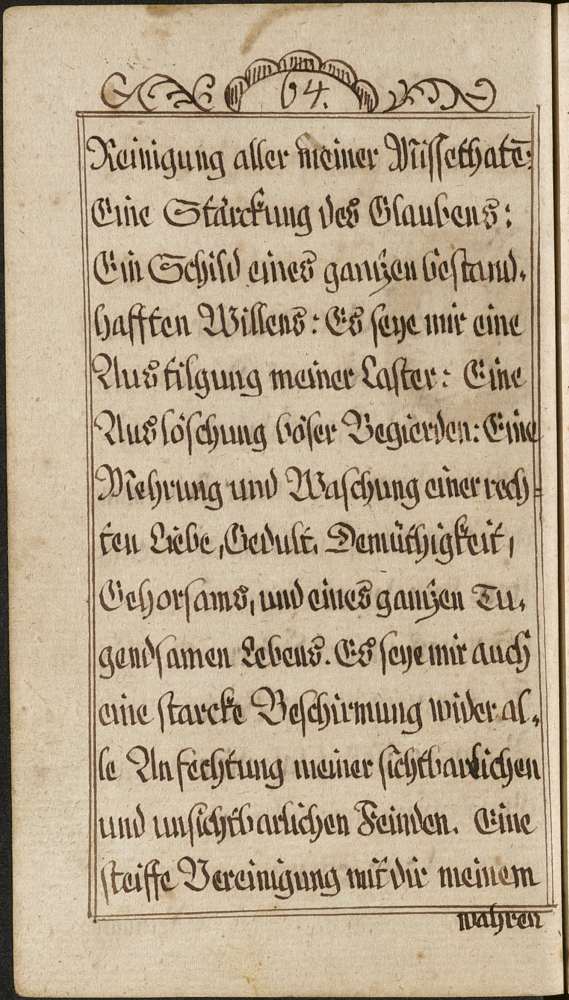 64.
Reinigung aller meiner Missethatē:
Eine Stärckung des Glaubens:
Ein Schild eines gantzen bestand-
hafften Willens: Es seye mir eine
Austilgung meiner Laster: Eine
Auslöschung böser Begierden: Eine
Mehrung und Waschung einer rech-
ten Liebe, Gedult, Demüthigkeit,
Gehorsams, und eines gantzen Tu-
gendsamen Lebens. Es seye mir auch
eine starcke Beschirmung wider al-
le Anfechtung meiner sichtbarlichen
und unsichtbarlichen Feinden. Eine
steiffe Vereinigung mit dir meinem
wahren